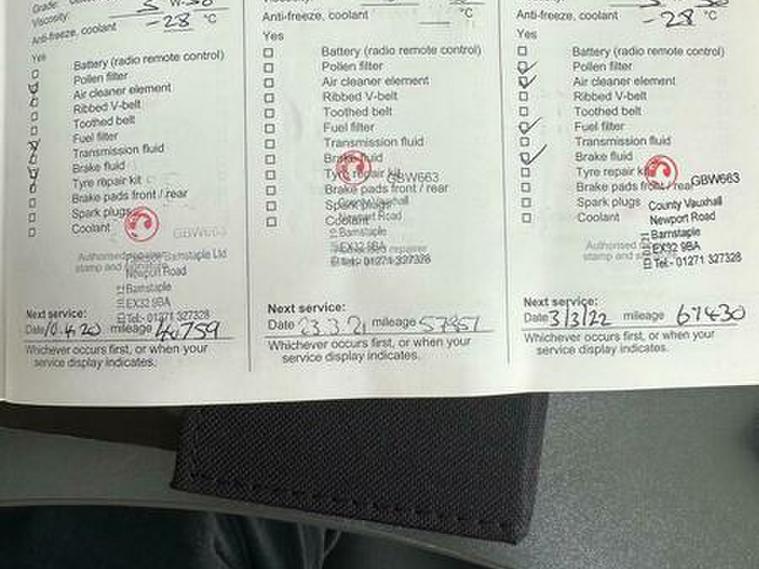 Grade:
Viscosity: 5 W-30
Anti-freeze, coolant -28 °C
Yes
Battery (radio remote control)
Pollen filter
Air cleaner element
Ribbed V-belt
Toothed belt
Fuel filter
Transmission fluid
Brake fluid
Tyre repair kit
Brake pads front / rear
Spark plugs
Coolant
GBW663
Authorised repairer
stamp and
Barnstaple Ltd
Newport Road
Barnstaple
EX32 9BA
Tel:- 01271 327328
Next service:
Date 10.4.20 mileage
Whichever occurs first, or when your
service display indicates.
Anti-freeze, coolant °C
Yes
Battery (radio remote control)
Pollen filter
Air cleaner element
Ribbed V-belt
Toothed belt
Fuel filter
Transmission fluid
Brake fluid
Tyre repair kit
GBW663
Brake pads front / rear
Spark plugs
Coolant
County Vauxhall
Newport Road
Barnstaple
EX32 9BA
Tel:- 01271 327328
Next service:
Date 23.3.21 mileage
Whichever occurs first, or when your
service display indicates.
Anti-freeze, coolant -28 °C
Yes
Battery (radio remote control)
Pollen filter
Air cleaner element
Ribbed V-belt
Toothed belt
Fuel filter
Transmission fluid
Brake fluid
Tyre repair kit
Brake pads front / rear
GBW663
Spark plugs
Coolant
County Vauxhall
Newport Road
Barnstaple
EX32 9BA
Tel:- 01271 327328
Authorised
stamp and
Next service:
Date 3/3/22 mileage 67430
Whichever occurs first, or when your
service display indicates.